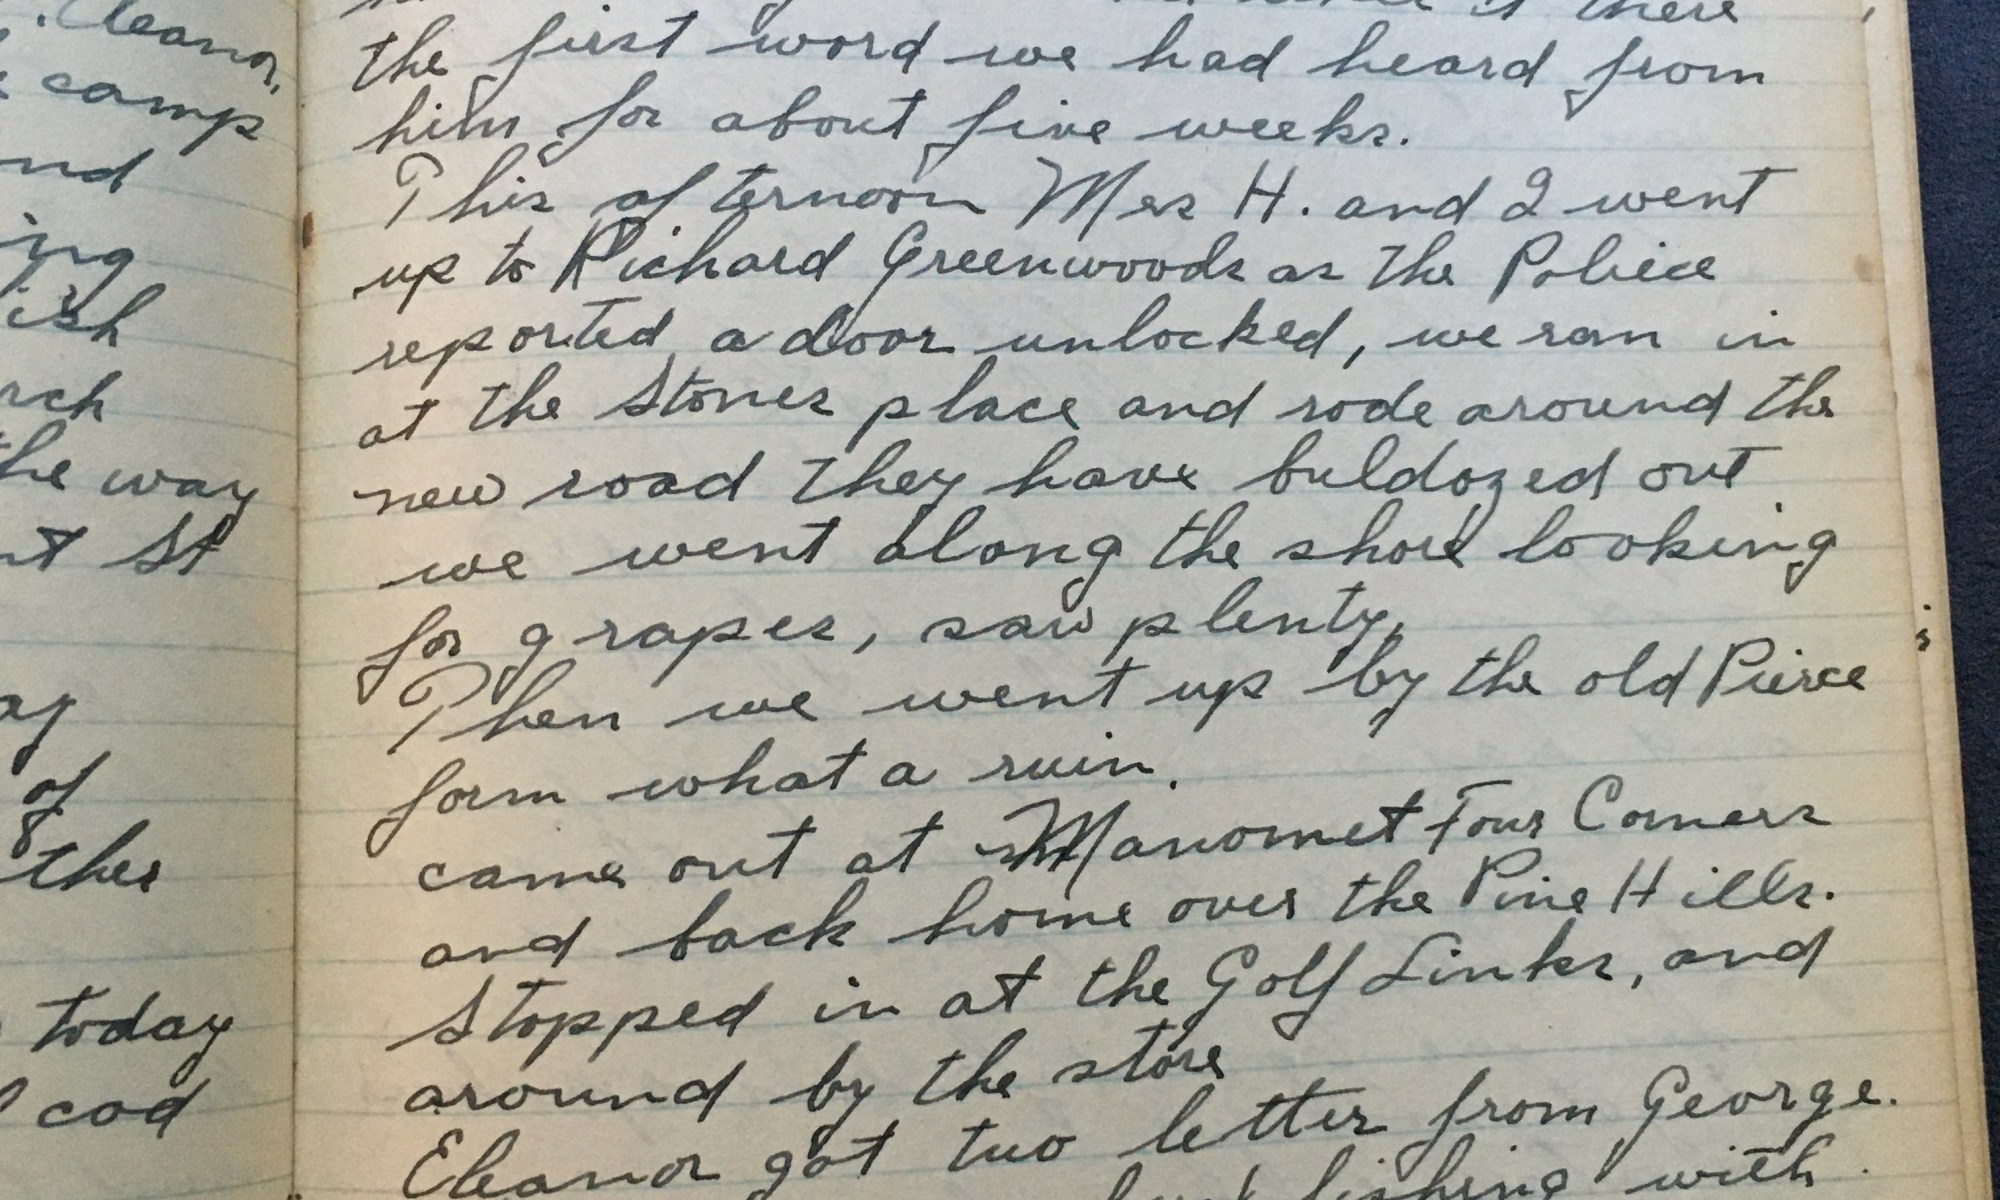 Eleanor,
camp
nd
ing
ish
rch
the way
nt St
ay
of
ther
today
cod
it there
the first word we had heard from
him for about five weeks.
This afternoon Mrs H. and I went
up to Richard Greenwoods as the Police
reported a door unlocked, we ran in
at the Stones place and rode around the
new road they have buldozed out
we went along the shore looking
for grapes, saw plenty,
Then we went up by the old Pierce
farm what a ruin.
came out at Manomet Four Corners
and back home over the Pine Hills.
Stopped in at the Golf Links, and
around by the store
Eleanor got two letter from George.
fishing with